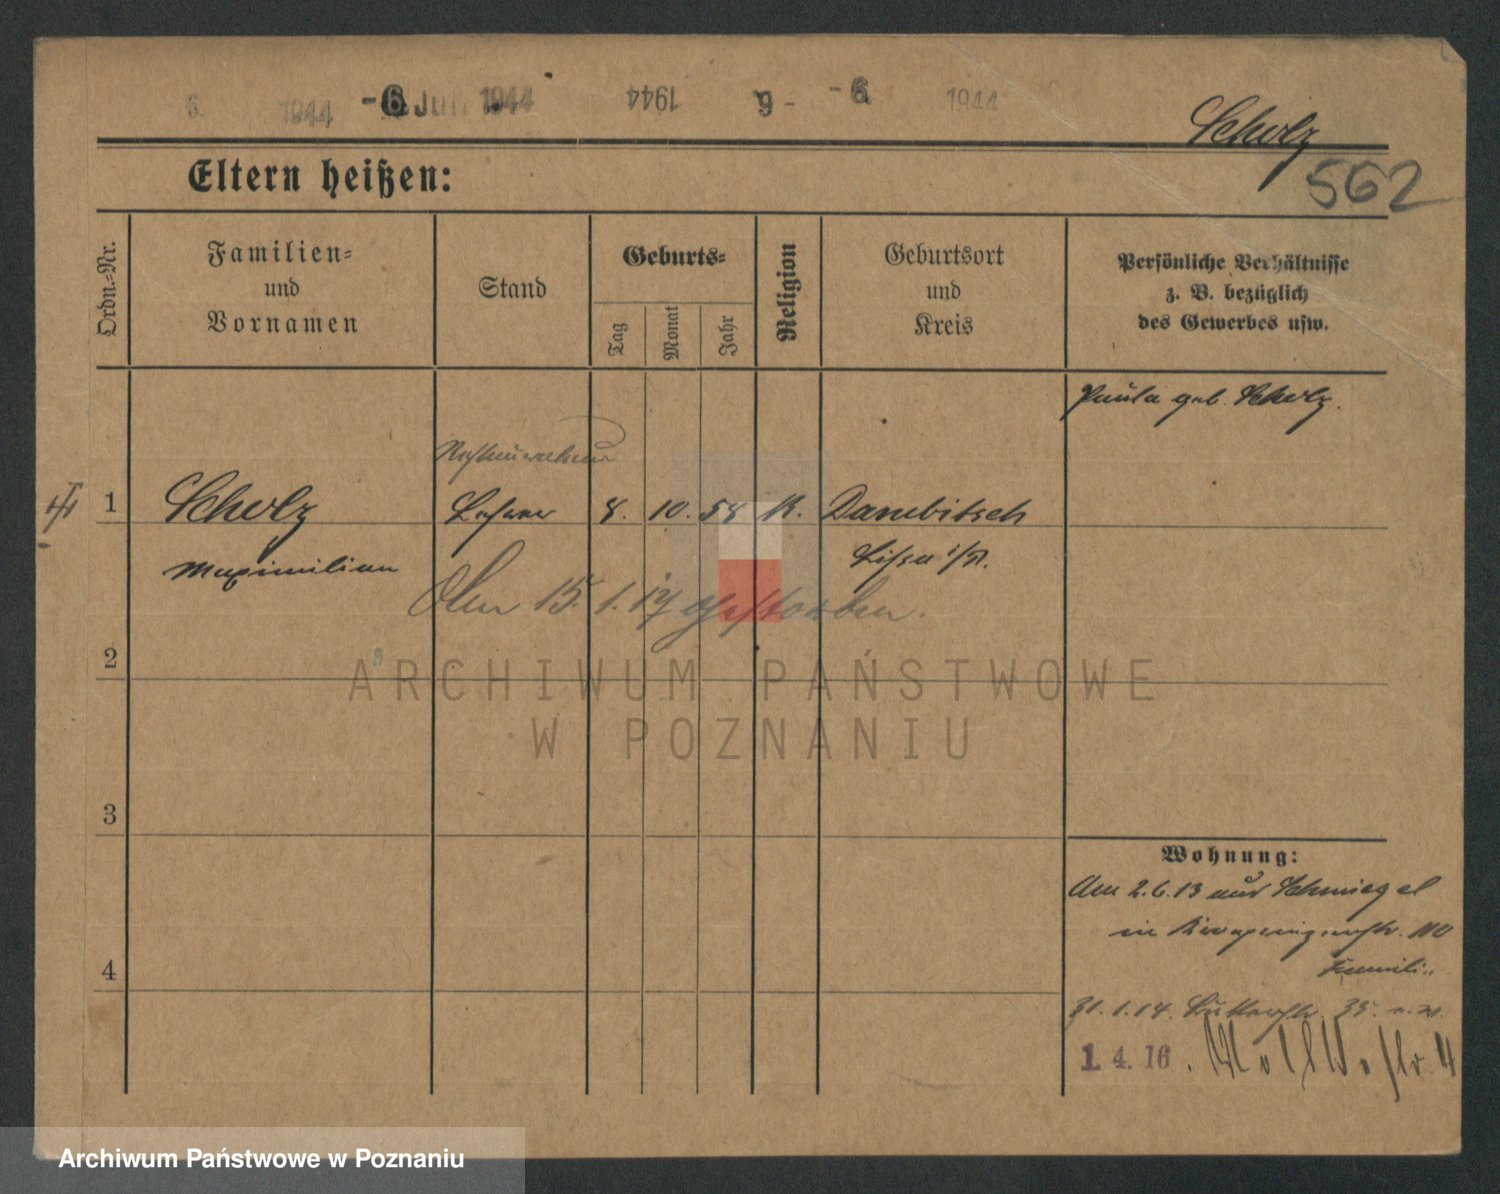 6. 1944 -6. Jun. 1944 1944 9- -6. 1944
Scholz
Eltern heißen:
562
Ordn.-Nr.
Familien-
und
Vornamen
Stand
Geburts-
Tag
Monat
Jahr
Religion
Geburtsort
und
Kreis
Persönliche Verhältnisse
z. B. bezüglich
des Gewerbes usw.
Paula geb. Scholz.
1 Scholz Lehrer 8. 10. 58 K. Dambitsch
Maximilian Lissa i/P.
Am 15. 1. 17 gestorben.
2
ARCHIWUM PAŃSTWOWE
W POZNANIU
3
Wohnung:
Am 2.6.13 aus Schmiegel
in
Familie
4
31.1.14. 35.
1. 4. 16. 4
Archiwum Państwowe w Poznaniu